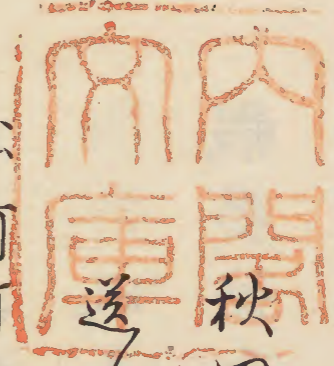 内閣
文庫
秋
送